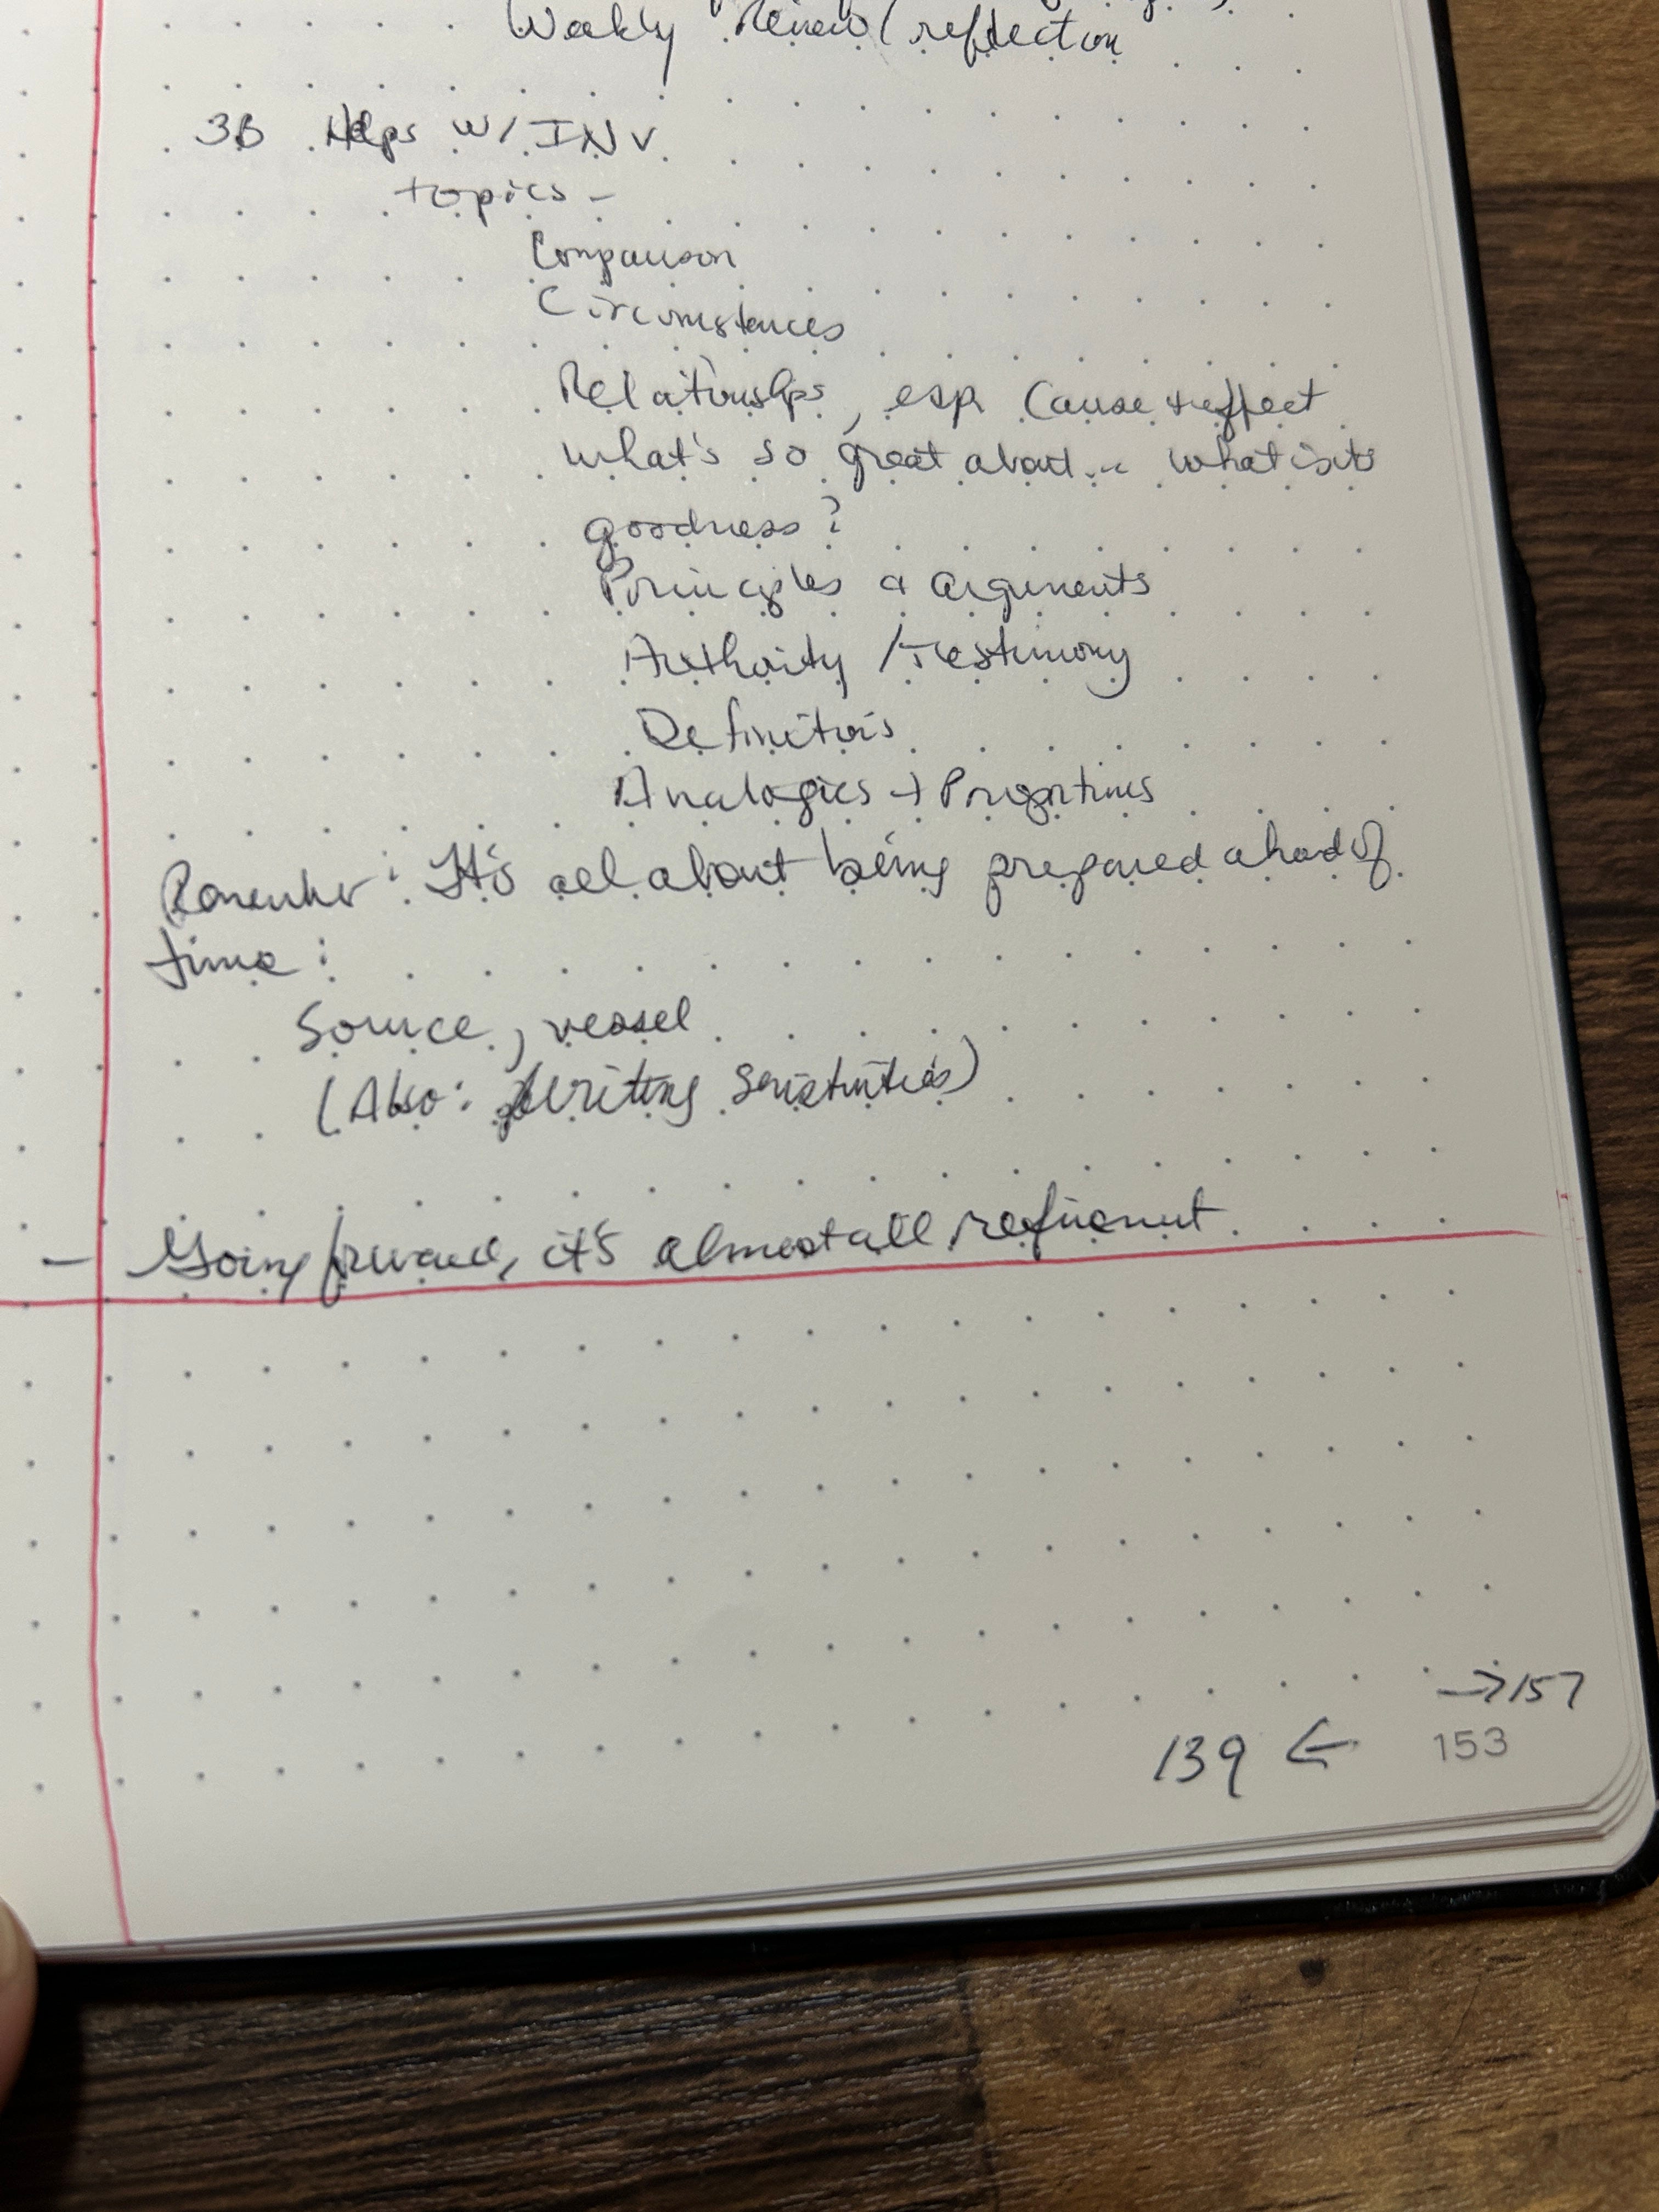 Weekly Review / reflection
3B Helps w/ INV
topics -
Comparison
Circumstances
Relationships, esp Cause & effect
what's so great about... what is its
goodness?
Principles & arguments
Authority / Testimony
Definitions
Analogies + Proportions
Remember: It's all about being prepared ahead of
time:
Source, vessel
(Also: Writing
- Going forward, it's almost all refinement
→ 157
139 ← 153